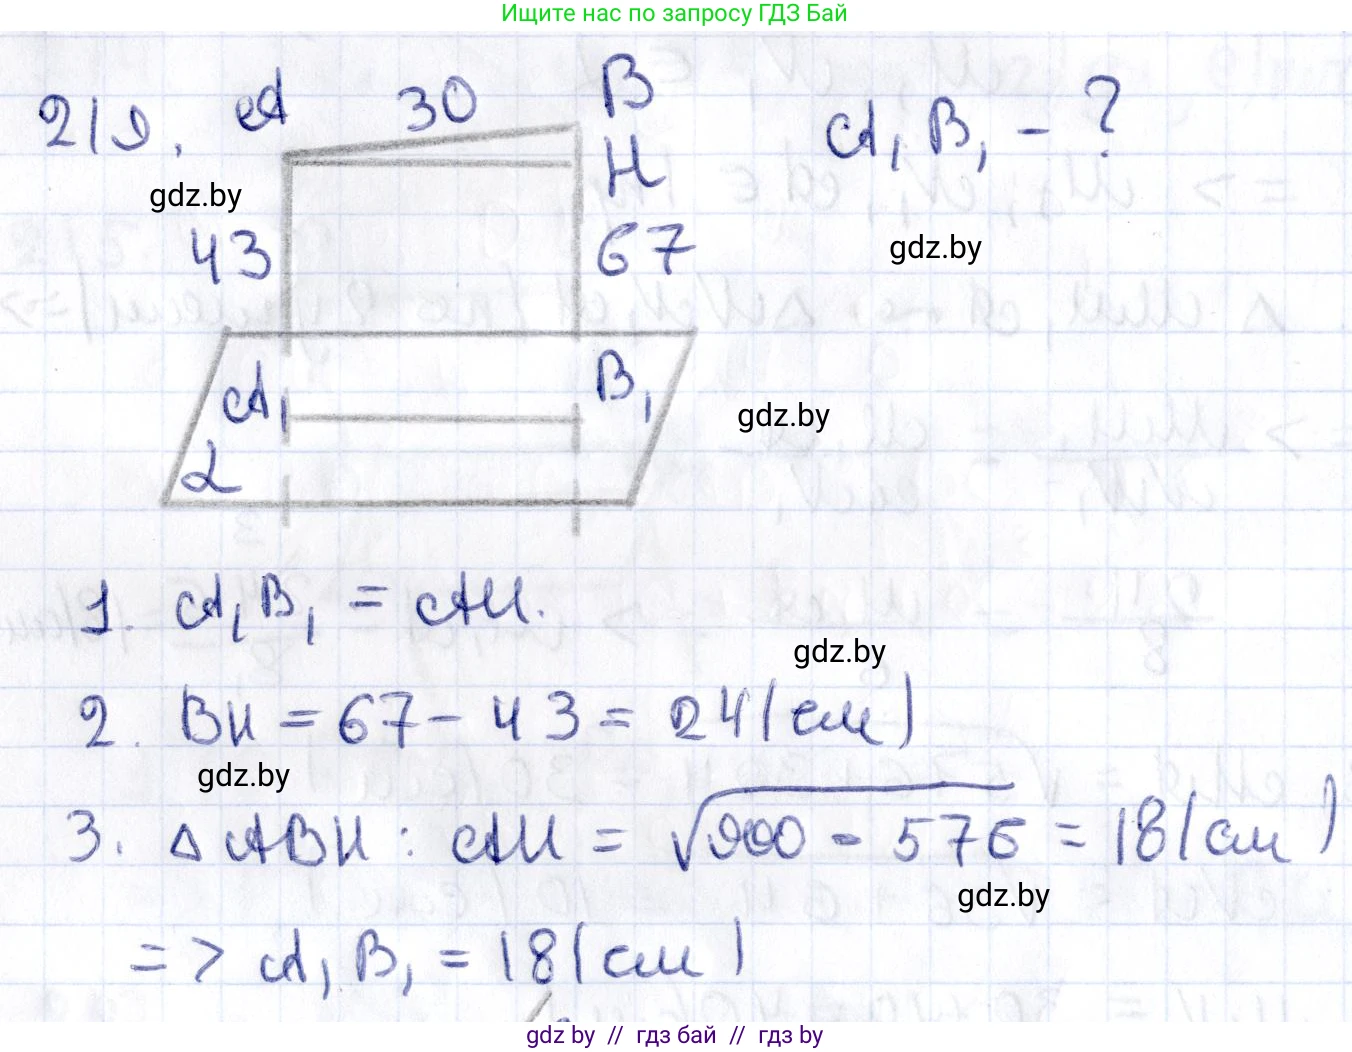 Ищите нас по запросу ГДЗ Бай
219. A 30 B A₁B₁ - ?
H
gdz.by
43 67 gdz.by
A₁ B₁
gdz.by
α
1. A₁B₁ = AH.
gdz.by
2. BH = 67 - 43 = 24 (см)
gdz.by
3. △ABH : AH = √900 - 576 = 18 (см)
gdz.by
=> A₁B₁ = 18 (см)
gdz by // гдз бай // гдз by